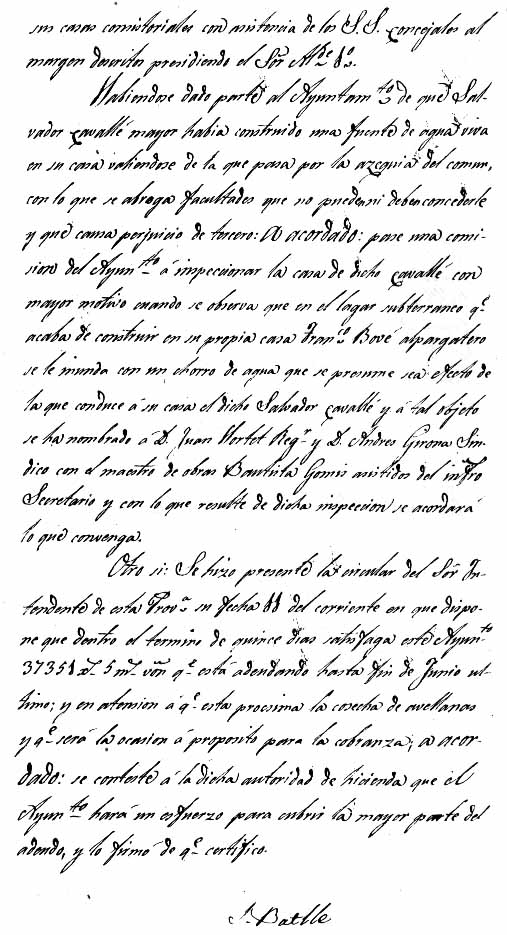 sus casas consistoriales con asistencia de los S.S. Concejales al
margen descritos presidiendo el Sõr Alẽ 1º.
Habiendose dado parte al Ayuntamto de que Sal-
vador Cavallé mayor habia construido una fuente de agua viva
en su casa valiendose de la que pasa por la azequia del comun,
con lo que se abroga facultades que no pueden ni deben concederle
y que causa perjuicio de tercero: A acordado: pase una comi-
sion del Ayunto á inspeccionar la casa de dicho Cavallé con
mayor motivo cuando se observa que en el lagar subterraneo qe
acaba de construir en su propia casa Franco Bové alpargatero
se le inunda con un chorro de agua que se presume sea efecto de
la que conduce á su casa el dicho Salvador Cavallé y á tal objeto
se ha nombrado á D. Juan Hortet Regr y D. Andres Girona Sin-
dico con el maestro de obras Bautista Gomis asistidos del infro
Secretario y con lo que resulte de dicha inspeccion se acordará
lo que convenga.
Otro si: Se hizo presente la circular del Sõr In-
tendente de esta Prova su fecha 11 del corriente en que dispo-
ne que dentro el termino de quince dias satisfaga este Ayunto
37351 rs 5 ms von qe está adeudando hasta fin de Junio ul-
timo; y en atension á qe esta procsima la cosecha de avellanas
y qe será la ocasion á proposito para la cobranza; a acor-
dado: se conteste á la dicha autoridad de hicienda que el
Ayunto hará un esfuerzo para cubrir la mayor parte del
adeudo, y lo firmó de qe certifico.
J. Batlle